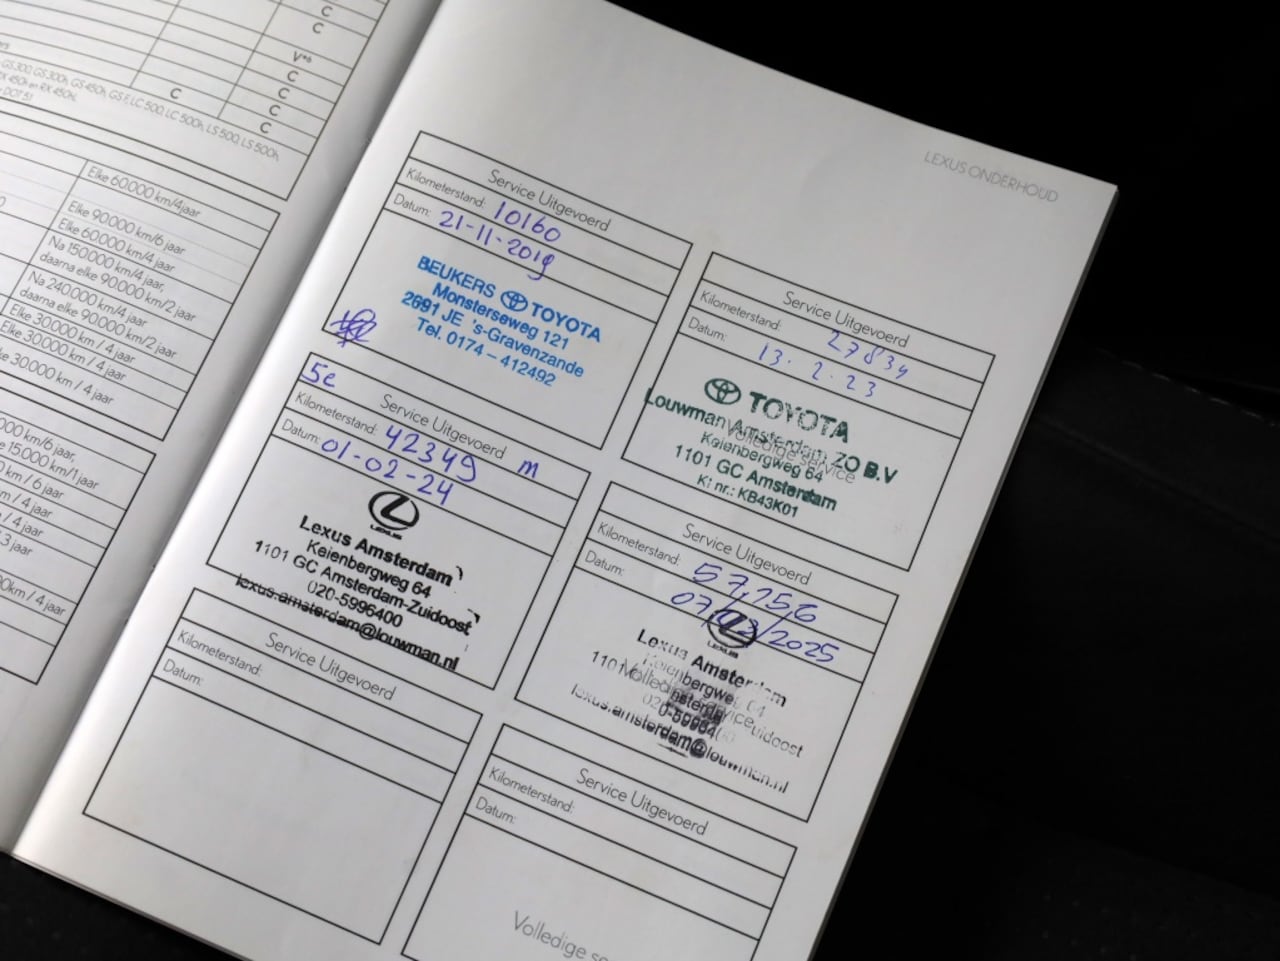 C
C
V*6
C
C
C
C
C
GS 300, GS 300h, GS 450h, GS F, LC 500, LC 500h, LS 500, LS 500h,
RX 450h en RX 450hL
DOT 5.1
Elke 60.000 km/4jaar
Elke 90.000 km/6 jaar
Elke 60.000 km/4 jaar
Na 150.000 km/4 jaar,
daarna elke 90.000 km/2 jaar
Na 240.000 km/4 jaar
daarna elke 90.000 km/2 jaar
Elke 30.000 km / 4 jaar
Elke 30.000 km / 4 jaar
ke 30.000 km / 4 jaar
000 km/6 jaar,
e 15.000 km/1 jaar
km / 6 jaar
m / 4 jaar
/ 4 jaar
3 jaar
00km / 4 jaar
LEXUS ONDERHOUD
Service Uitgevoerd
Kilometerstand: 10160
Datum: 21-11-2019
BEUKERS TOYOTA
Monsterseweg 121
2691 JE 's-Gravenzande
Tel. 0174 - 412492
Service Uitgevoerd
Kilometerstand: 27834
Datum: 13.2.23
TOYOTA
Louwman Amsterdam ZO B.V
Volledige service
Keienbergweg 64
1101 GC Amsterdam
K: nr.: KB43K01
5e
Service Uitgevoerd
Kilometerstand: 42349 m
Datum: 01-02-24
LEXUS
Lexus Amsterdam
Keienbergweg 64
1101 GC Amsterdam-Zuidoost
020-5996400
lexus.amsterdam@louwman.nl
Service Uitgevoerd
Kilometerstand: 57,256
Datum: 07/02/2025
Lexus Amsterdam
Keienbergweg 64
1101 Amsterdam Zuidoost
Volledige service
020-5996400
lexus.amsterdam@louwman.nl
Service Uitgevoerd
Kilometerstand:
Datum:
Service Uitgevoerd
Kilometerstand:
Datum:
Volledige se